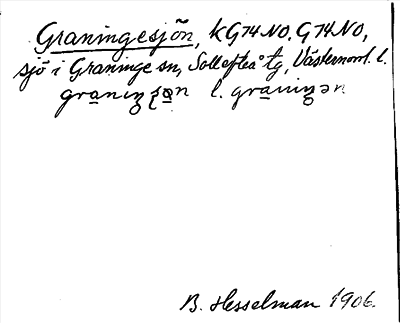 Graningesjön, KG74NO. G74NO,
sjö i Graninge sn, Sollefteå tg, Västernorrl. l.
l.
B. Hesselman 1906.